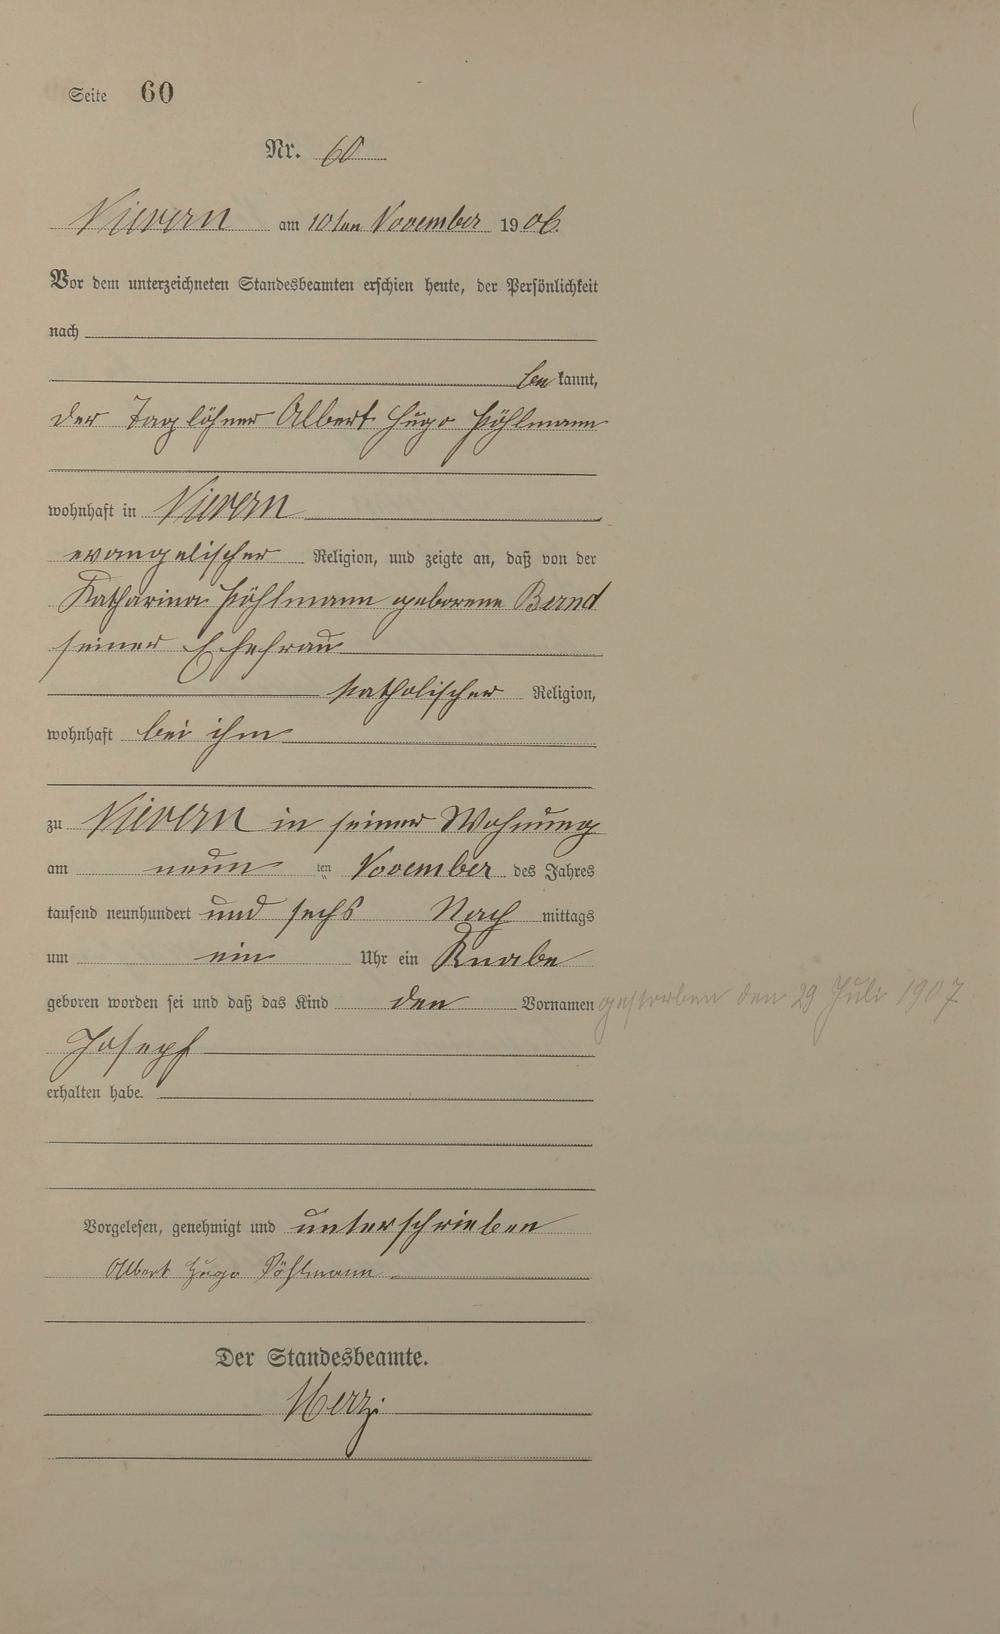 Seite 60
Nr. 60
Nievern am 10ten November 1906.
Vor dem unterzeichneten Standesbeamten erschien heute, der Persönlichkeit
nach
be kannt,
der Taglöhner Albert Hugo Pöhlmann
wohnhaft in Nievern
evangelischer Religion, und zeigte an, daß von der
Katharina Pöhlmann geborene Bernd
seiner Ehefrau
katholischer Religion,
wohnhaft bei ihm
zu Nievern in seiner Wohnung
am neun ten November des Jahres
tausend neunhundert und sechs Nach mittags
um ein Uhr ein Knabe
geboren worden sei und daß das Kind den Vornamen
gestorben den 29 Juli 1907
Joseph
erhalten habe.
Vorgelesen, genehmigt und unterschrieben
Albert Hugo Pöhlmann
Der Standesbeamte.